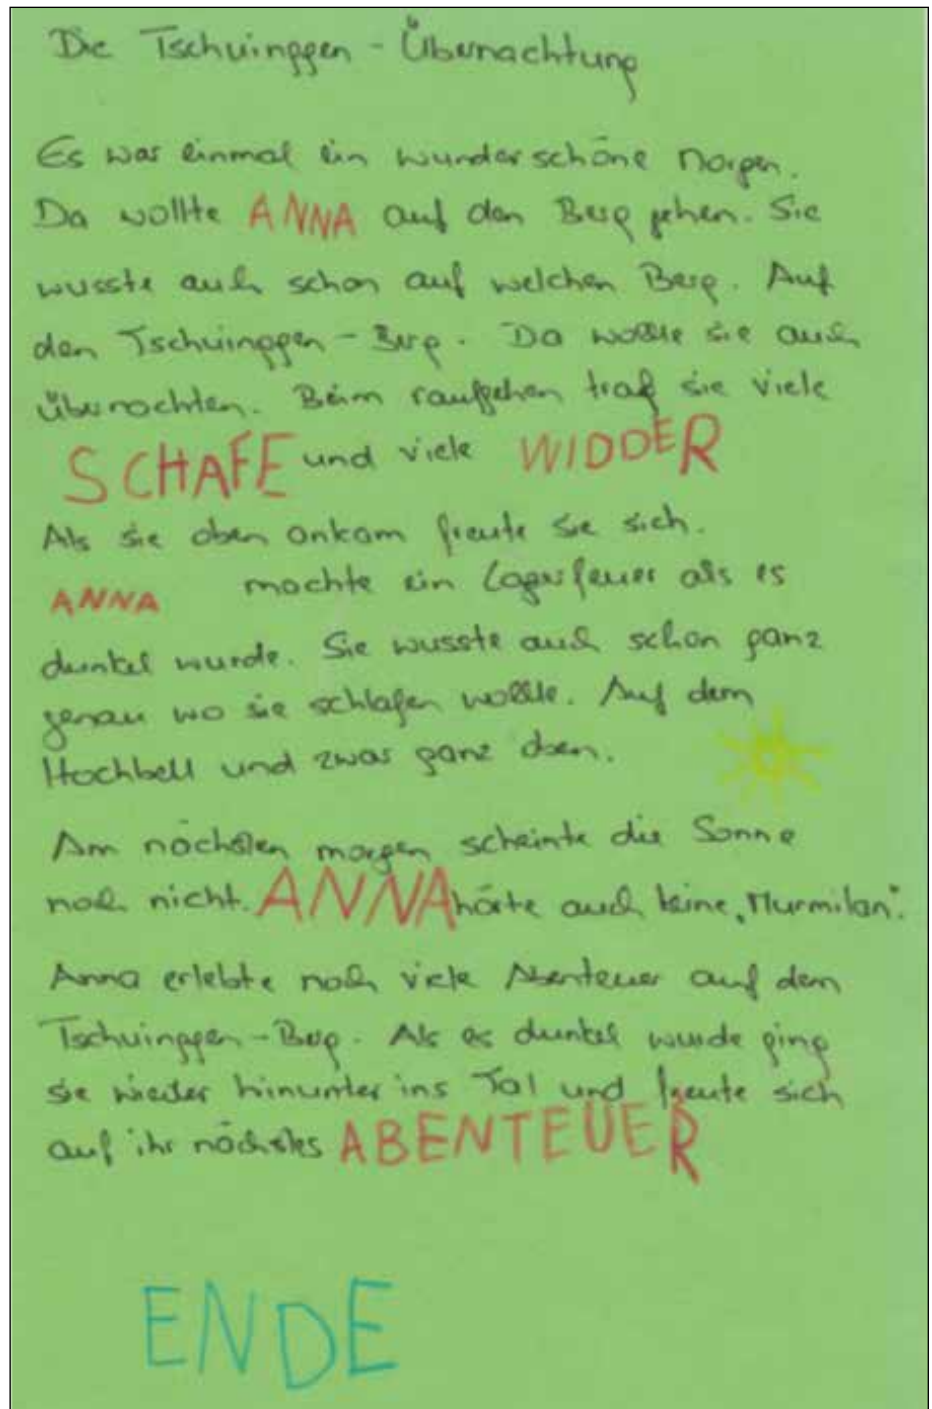 Die Tschuinggen - Übernachtung
Es war einmal ein wunderschöne morgen.
Da wollte ANNA auf den Berg gehen. Sie
wusste auch schon auf welchen Berg. Auf
den Tschuinggen - Berg. Da wollte sie auch
übernachten. Beim raufgehen traf sie viele
SCHAFE und viele WIDDER
Als sie oben ankam freute sie sich.
ANNA machte ein Lagerfeuer als es
dunkel wurde. Sie wusste auch schon ganz
genau wo sie schlafen wollte. Auf dem
Hochbett und zwar ganz oben.
Am nächsten morgen scheinte die Sonne
noch nicht. ANNA hörte auch keine „Murmilan".
Anna erlebte noch viele Abenteuer auf dem
Tschuinggen - Berg. Als es dunkel wurde ging
sie wieder hinunter ins Tal und freute sich
auf ihr nächstes ABENTEUER
ENDE